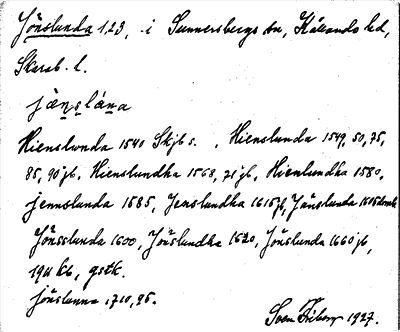 Jönslunda 1,2,3, i Sunnersbergs sn, Kållands hd,
Skarab. l.
jänslåna
Hienslwnda 1540 Skjb s. , Hienslunda 1549, 50, 75,
85, 90 jb, Hienslundha 1568, 71 jb, Hienlundha 1580,
jennslunda 1585, Jenslundha 1615 jb, Jönslunda 1605
Jönsslunda 1600, Jönslundha 1620, Jönslunda 1660 jb,
1911 kb, gstk.
Jönslunna 1710, 95.
Sven Friberg 1927.